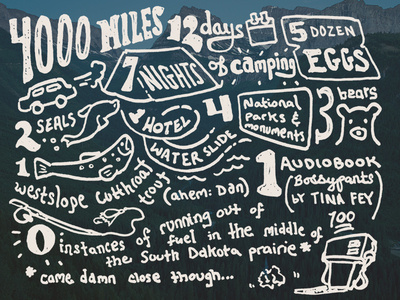 4000 MILES 12 days
7 NIGHTS of camping
5 DOZEN EGGS
2 SEALS
HOTEL WATER SLIDE
4 National Parks & monuments
3 bears
1 westslope cutthroat trout (ahem: Dan)
1 AUDIOBOOK
(Bossypants
by TINA FEY)
0 instances of running out of
fuel in the middle of
the South Dakota prairie*
100
* came damn close though...